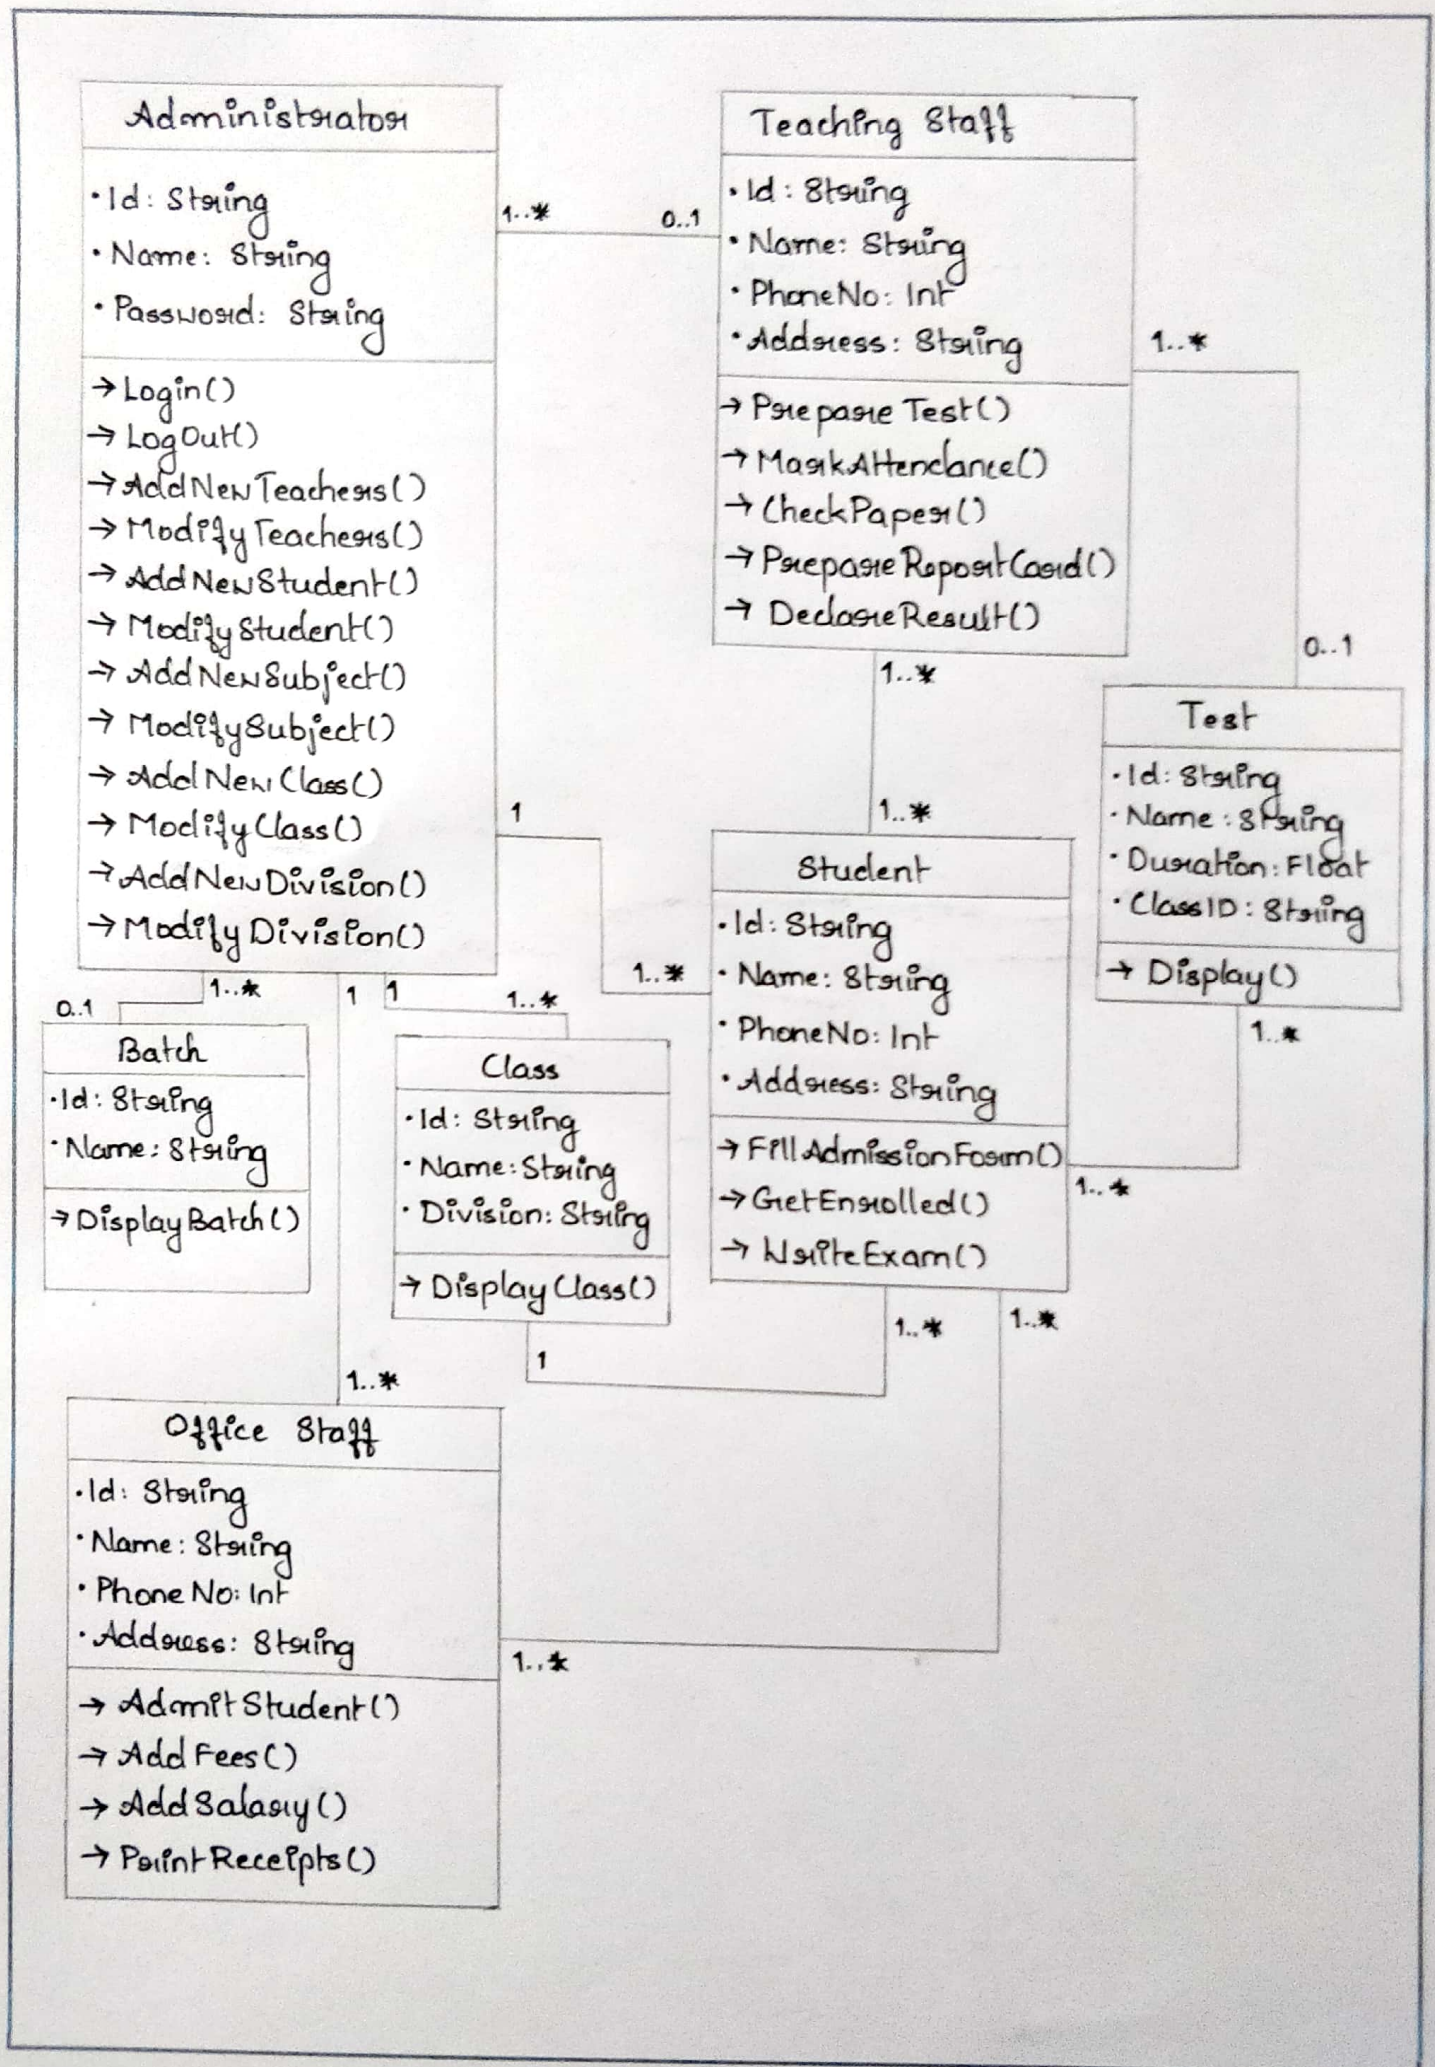 Administrator
• Id: String
• Name: String
• Password: String
→ Login()
→ LogOut()
→ AddNewTeachers()
→ ModifyTeachers()
→ AddNewStudent()
→ ModifyStudent()
→ AddNewSubject()
→ ModifySubject()
→ AddNewClass()
→ ModifyClass()
→ AddNewDivision()
→ ModifyDivision()
1..*
0..1
Teaching Staff
• Id: String
• Name: String
• PhoneNo: Int
• Address: String
→ Prepare Test()
→ MarkAttendance()
→ CheckPaper()
→ PrepareReportCard()
→ DeclareResult()
1..*
0..1
1..*
1..*
Test
• Id: String
• Name: String
• Duration: Float
• ClassID: String
→ Display()
1..*
1..*
1
1..*
Student
• Id: String
• Name: String
• PhoneNo: Int
• Address: String
→ FillAdmissionForm()
→ GetEnrolled()
→ WriteExam()
1..*
1..*
0..1
1..*
1
1
1..*
Batch
• Id: String
• Name: String
→ DisplayBatch()
Class
• Id: String
• Name: String
• Division: String
→ DisplayClass()
1
1..*
Office Staff
• Id: String
• Name: String
• PhoneNo: Int
• Address: String
→ AdmitStudent()
→ AddFees()
→ AddSalary()
→ PrintReceipts()
1..*